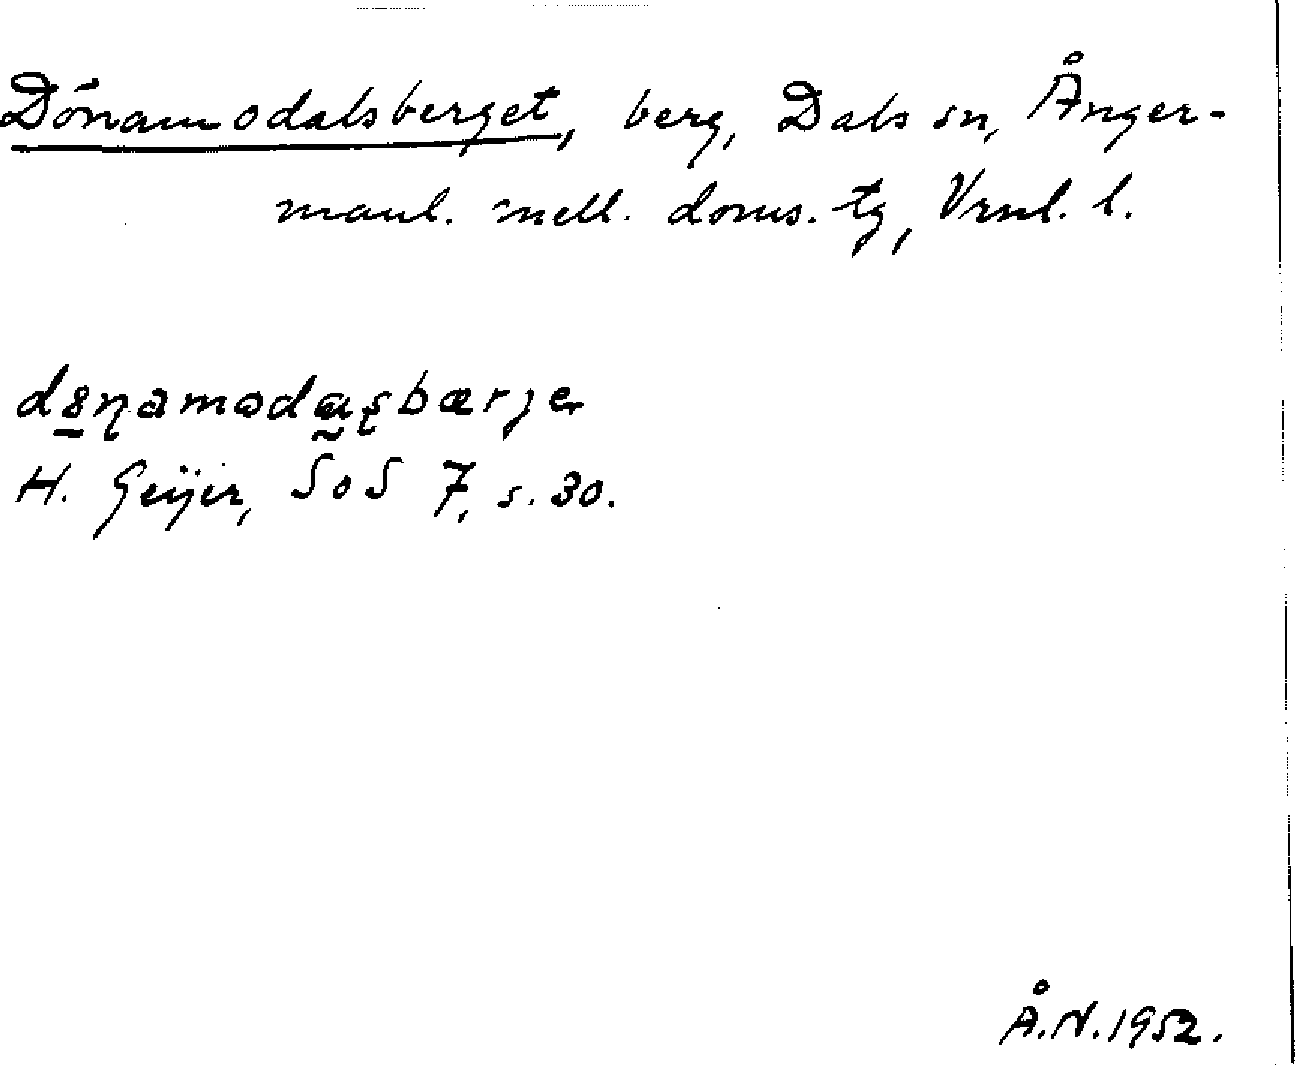 Dönamodalsberget, berg, Dals sn, Ånger-
manl. mell. doms. tg, Vrnl. l.
H. Geijer, SoS 7, s. 30.
Å.N. 1952.